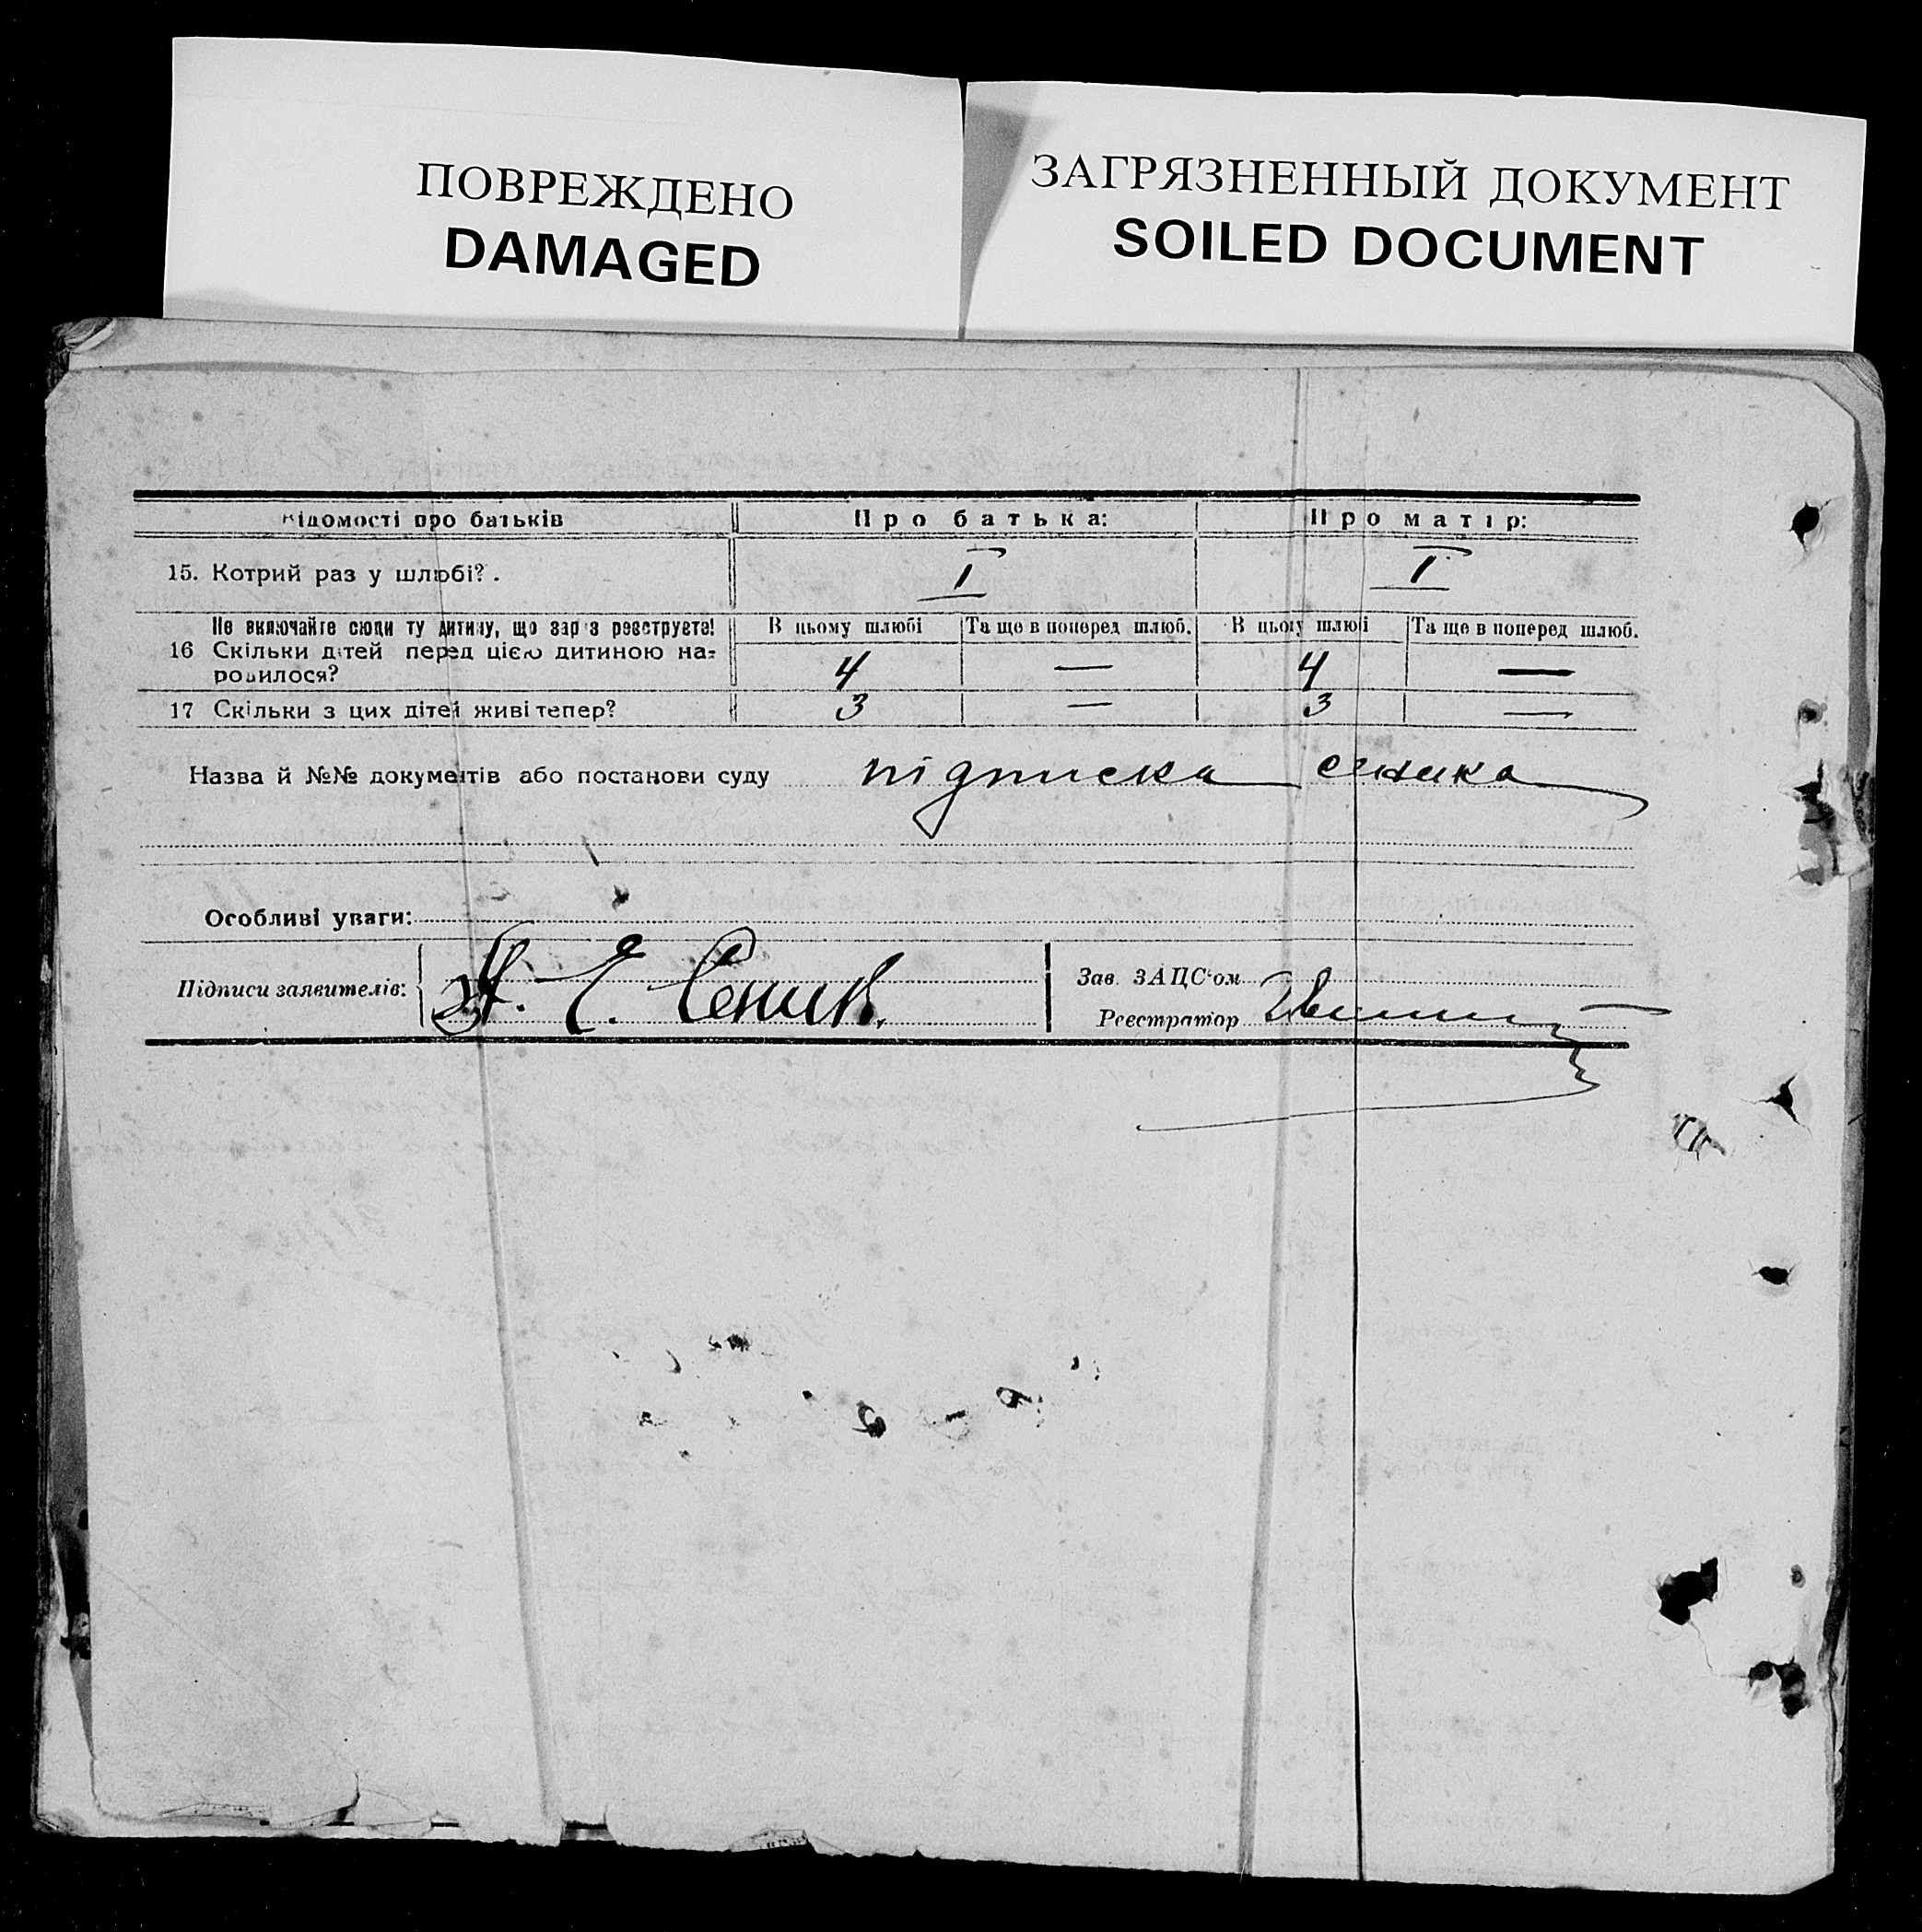 ПОВРЕЖДЕНО
DAMAGED
ЗАГРЯЗНЕННЫЙ ДОКУМЕНТ
SOILED DOCUMENT
Відомості про батьків Про батька: Про матір:
15. Котрий раз у шлюбі? . I I
Не включайте сюди ту дитину, що зараз реєструєте! В цьому шлюбі Та ще в поперед шлюб. В цьому шлюбі Та ще в поперед шлюб.
16 Скільки дітей перед цією дитиною на-
родилося? 4 — 4 —
17 Скільки з цих дітей живі тепер? 3 — 3 —
Назва й №№ документів або постанови суду підписка
Особливі уваги:
Підписи заявителів: Е. Сеник
Зав. ЗАЦС'ом
Реєстратор